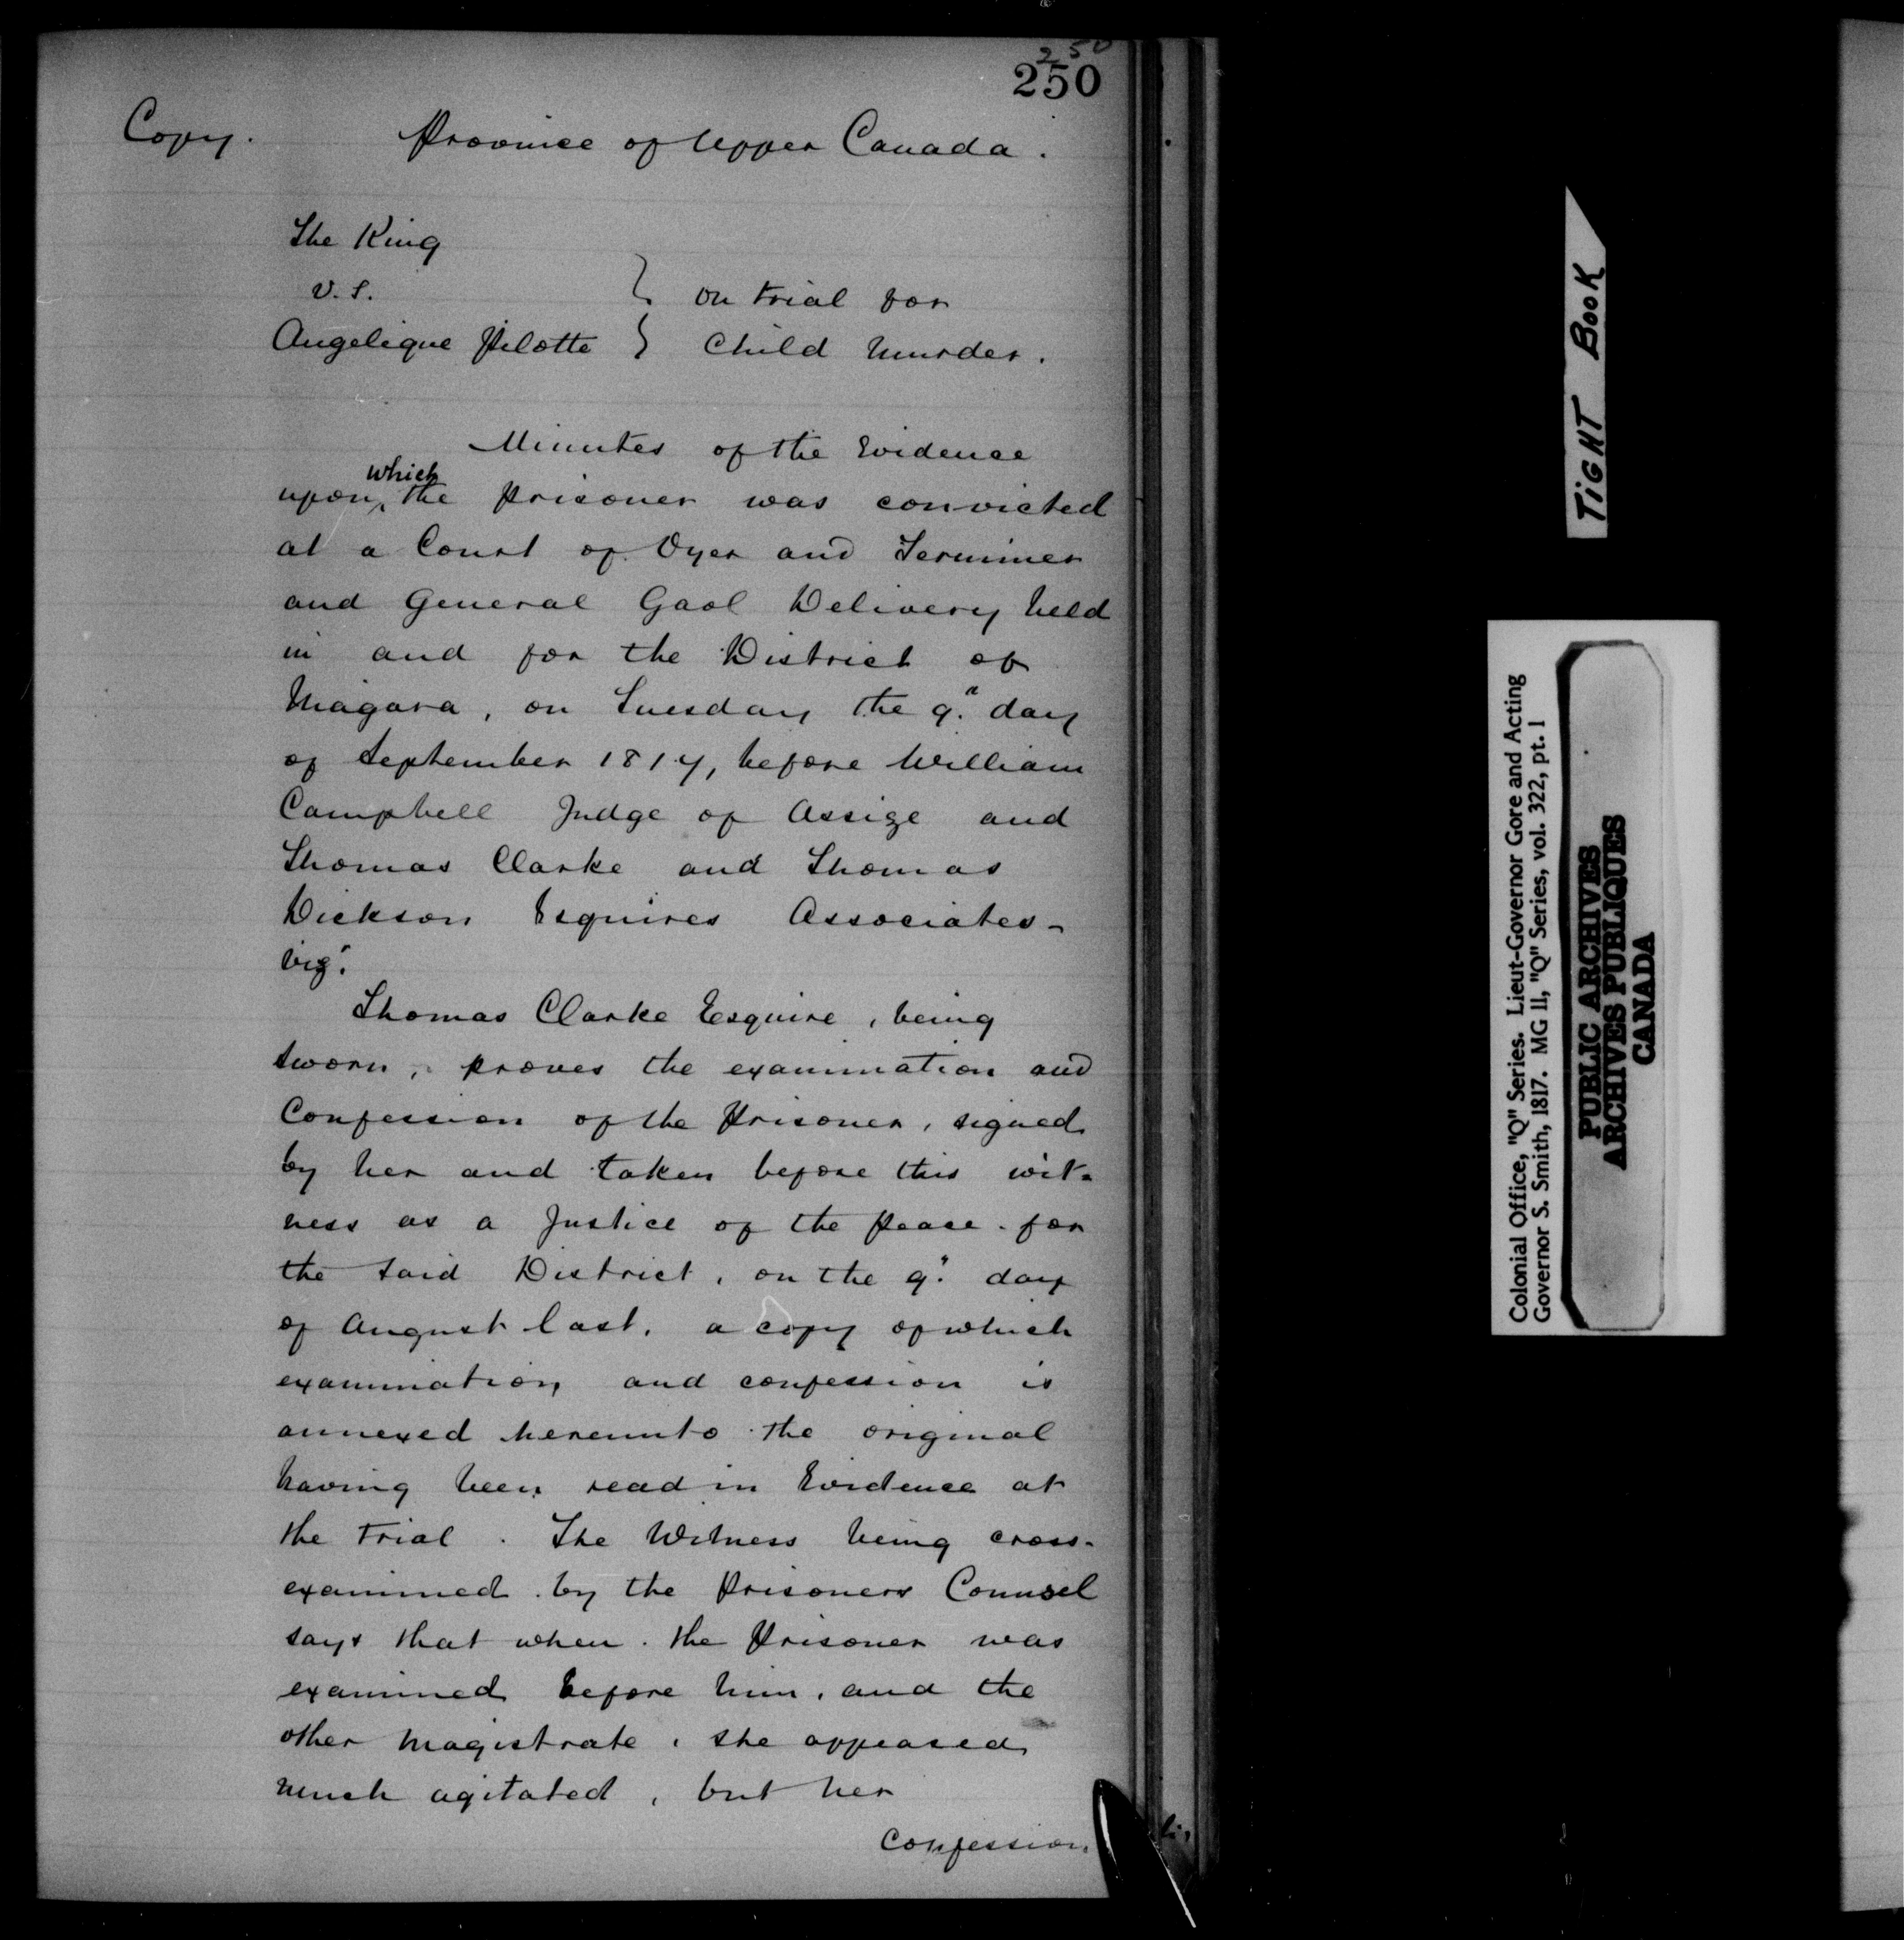 250
250
Copy.
Province of Upper Canada.
The King
v. s.
Angelique Pilotte } on trial for
Child Murder.
Minutes of the Evidence
upon which the prisoner was convicted
at a Court of Oyer and Terminer
and General Gaol Delivery held
in and for the District of
Niagara, on Tuesday the 9." day
of September 1817, before William
Campbell Judge of Assize and
Thomas Clarke and Thomas
Dickson Esquires Associates-
viz:
Thomas Clarke Esquire, being
sworn, proves the examination and
Confession of the Prisoner, signed
by her and taken before this wit-
ness as a Justice of the peace for
the said District, on the 9." day
of August last, a copy of which
examination and confession is
annexed hereunto the original
having been read in Evidence at
the trial. The Witness being cross-
examined by the Prisoners Counsel
says that when the Prisoner was
examined before him, and the
other Magistrate, she appeared
much agitated, but her
Confession
TIGHT BOOK
Colonial Office, "Q" Series. Lieut-Governor Gore and Acting
Governor S. Smith, 1817. MG 11, "Q" Series, vol. 322, pt. 1
PUBLIC ARCHIVES
ARCHIVES PUBLIQUES
CANADA